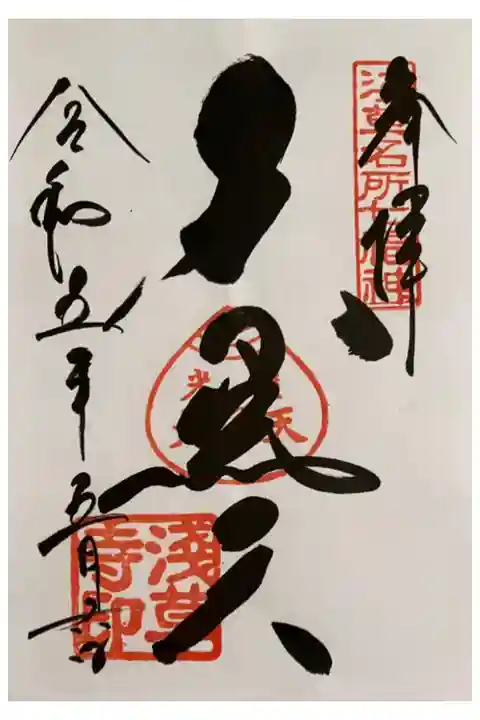 奉拝
浅草名所七福神
大黒天
淺草寺印
令和五年五月